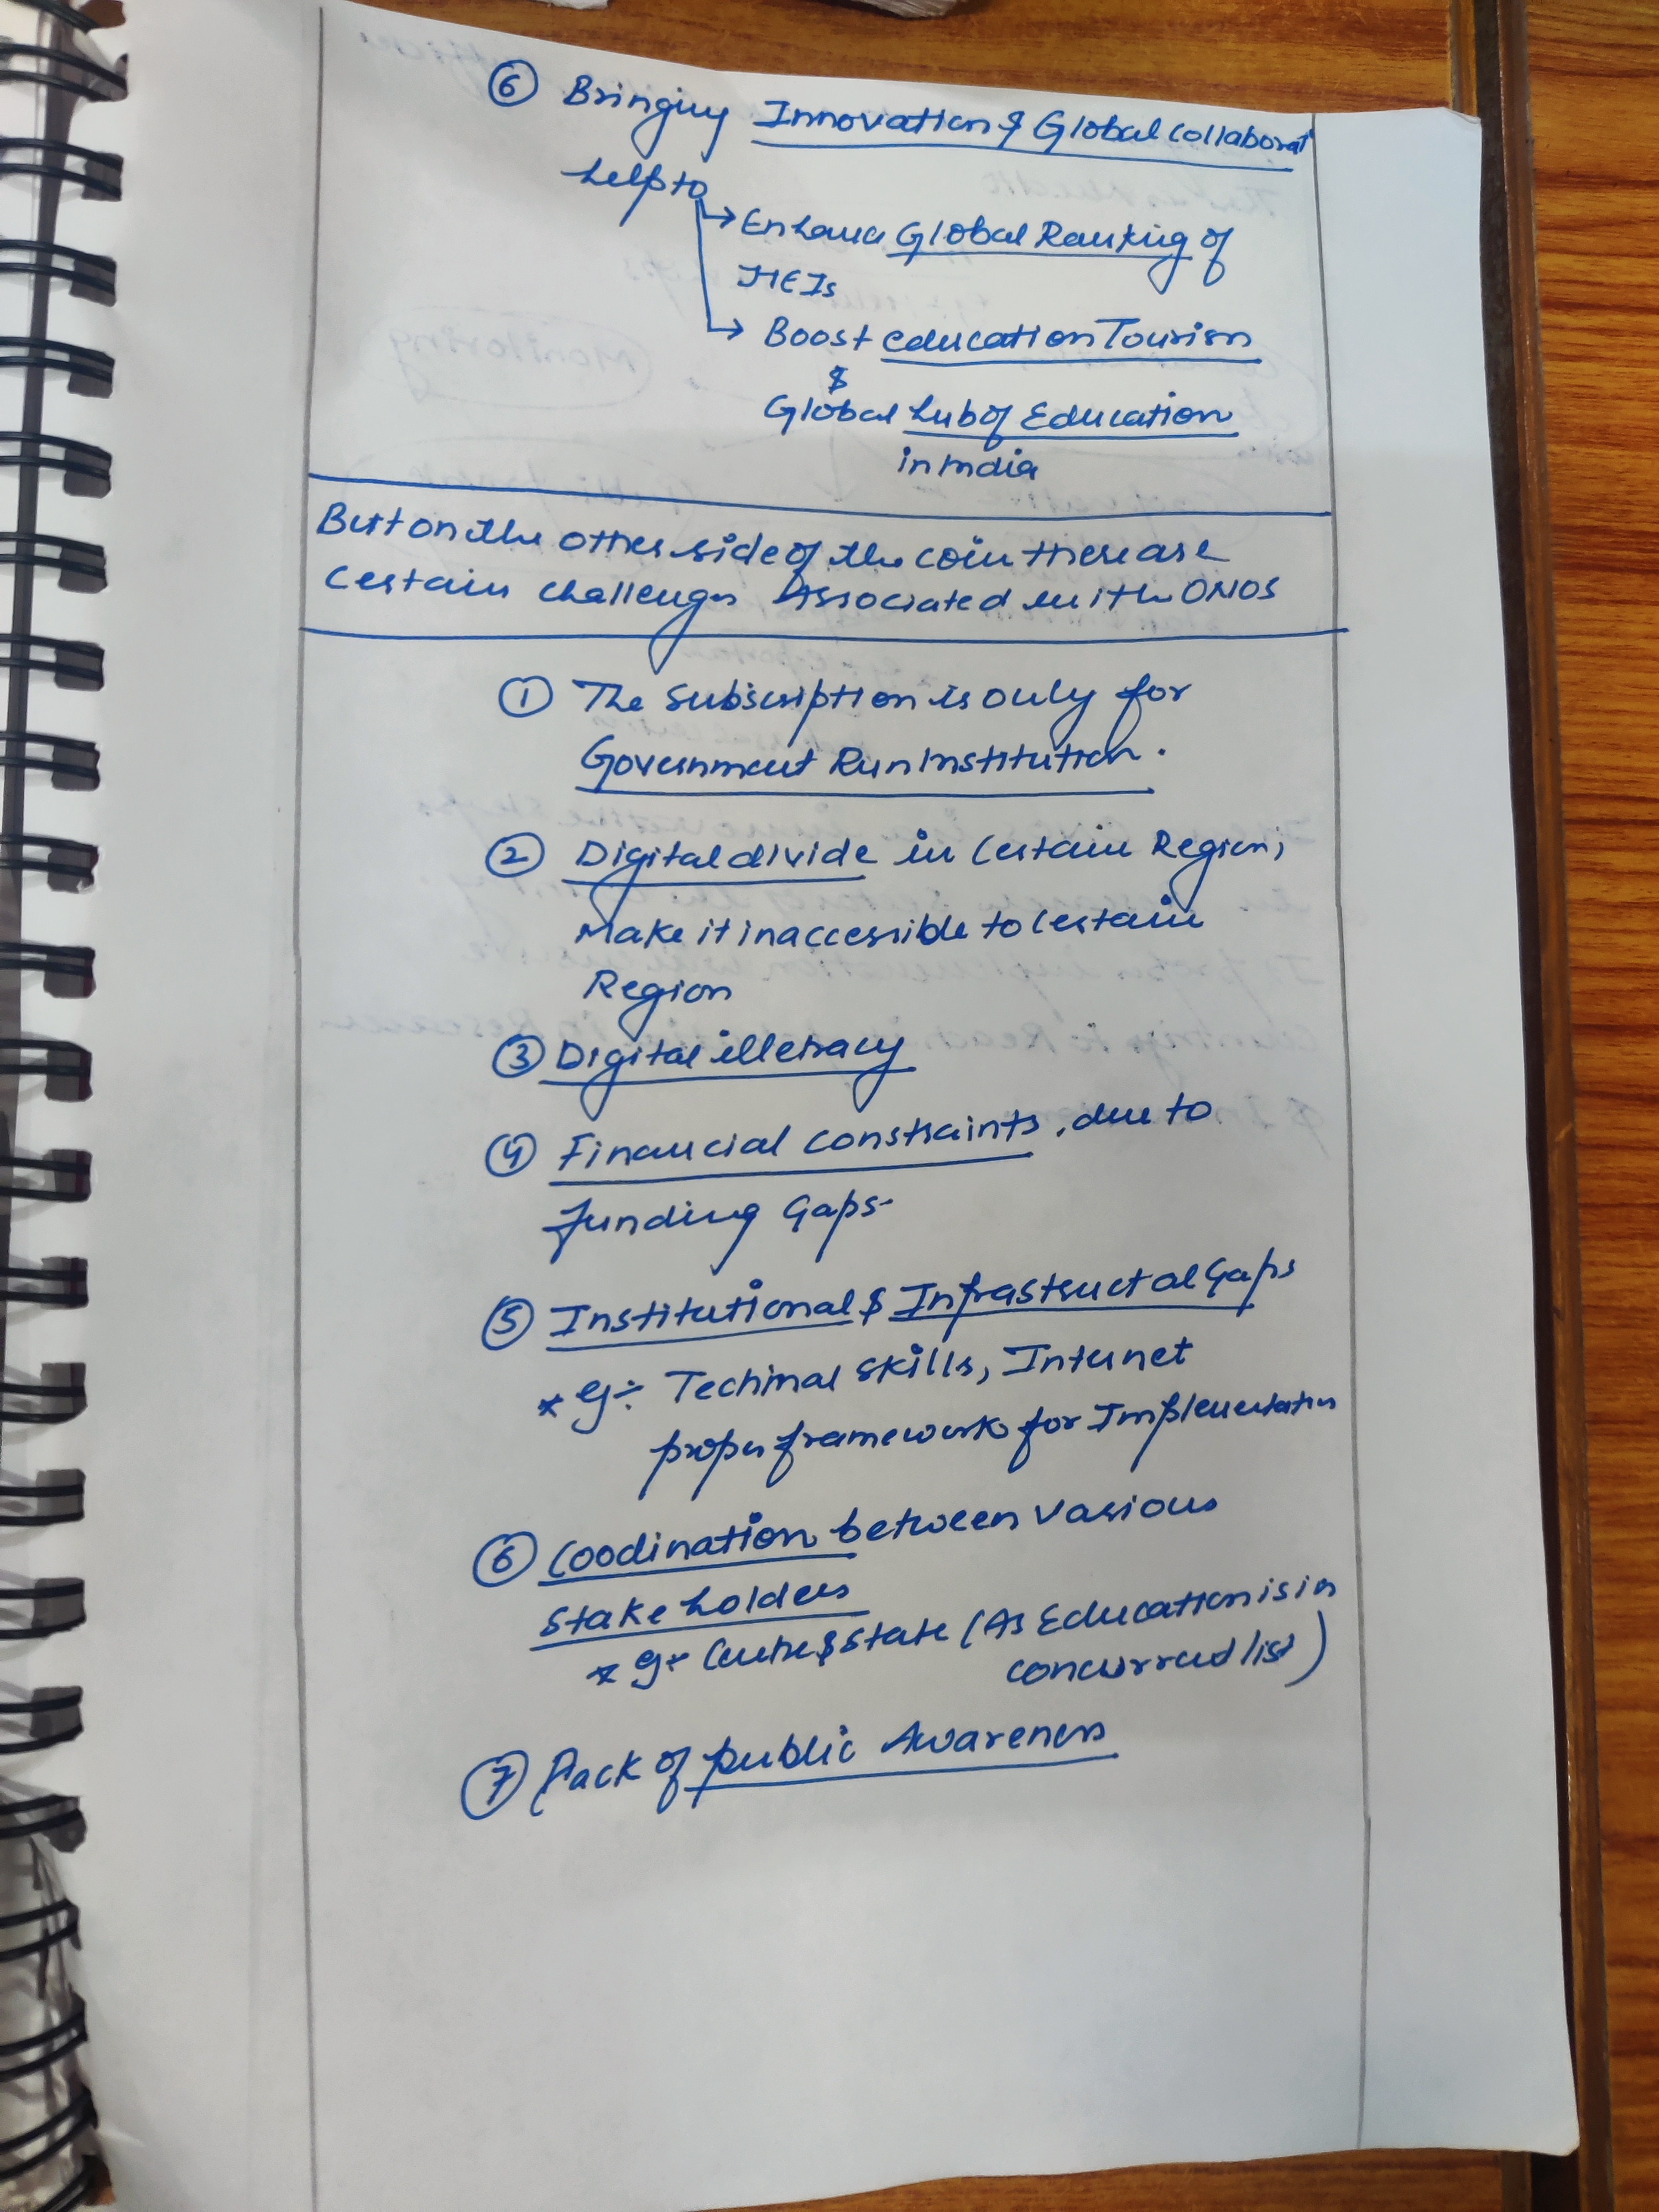 ⑥ Bringing Innovation & Global Collaborat
help to
→ Enhance Global Ranking of
HEIs
→ Boost education Tourism
&
Global hub of Education
in India
But on the other side of the coin there are
Certain challenges Associated with ONOS
① The Subscription is only for
Government Run Institution.
② Digital divide in Certain Region;
Make it inaccessible to Certain
Region
③ Digital illetracy
④ Financial constraints, due to
funding Gaps-
⑤ Institutional & Infrastructal Gaps
* eg÷ Techinal Skills, Internet
proper framework for Implementation
⑥ Coodination between various
Stake holders
* eg÷ Centre & State (As Education is in
concurrent list)
⑦ Lack of public Awareness